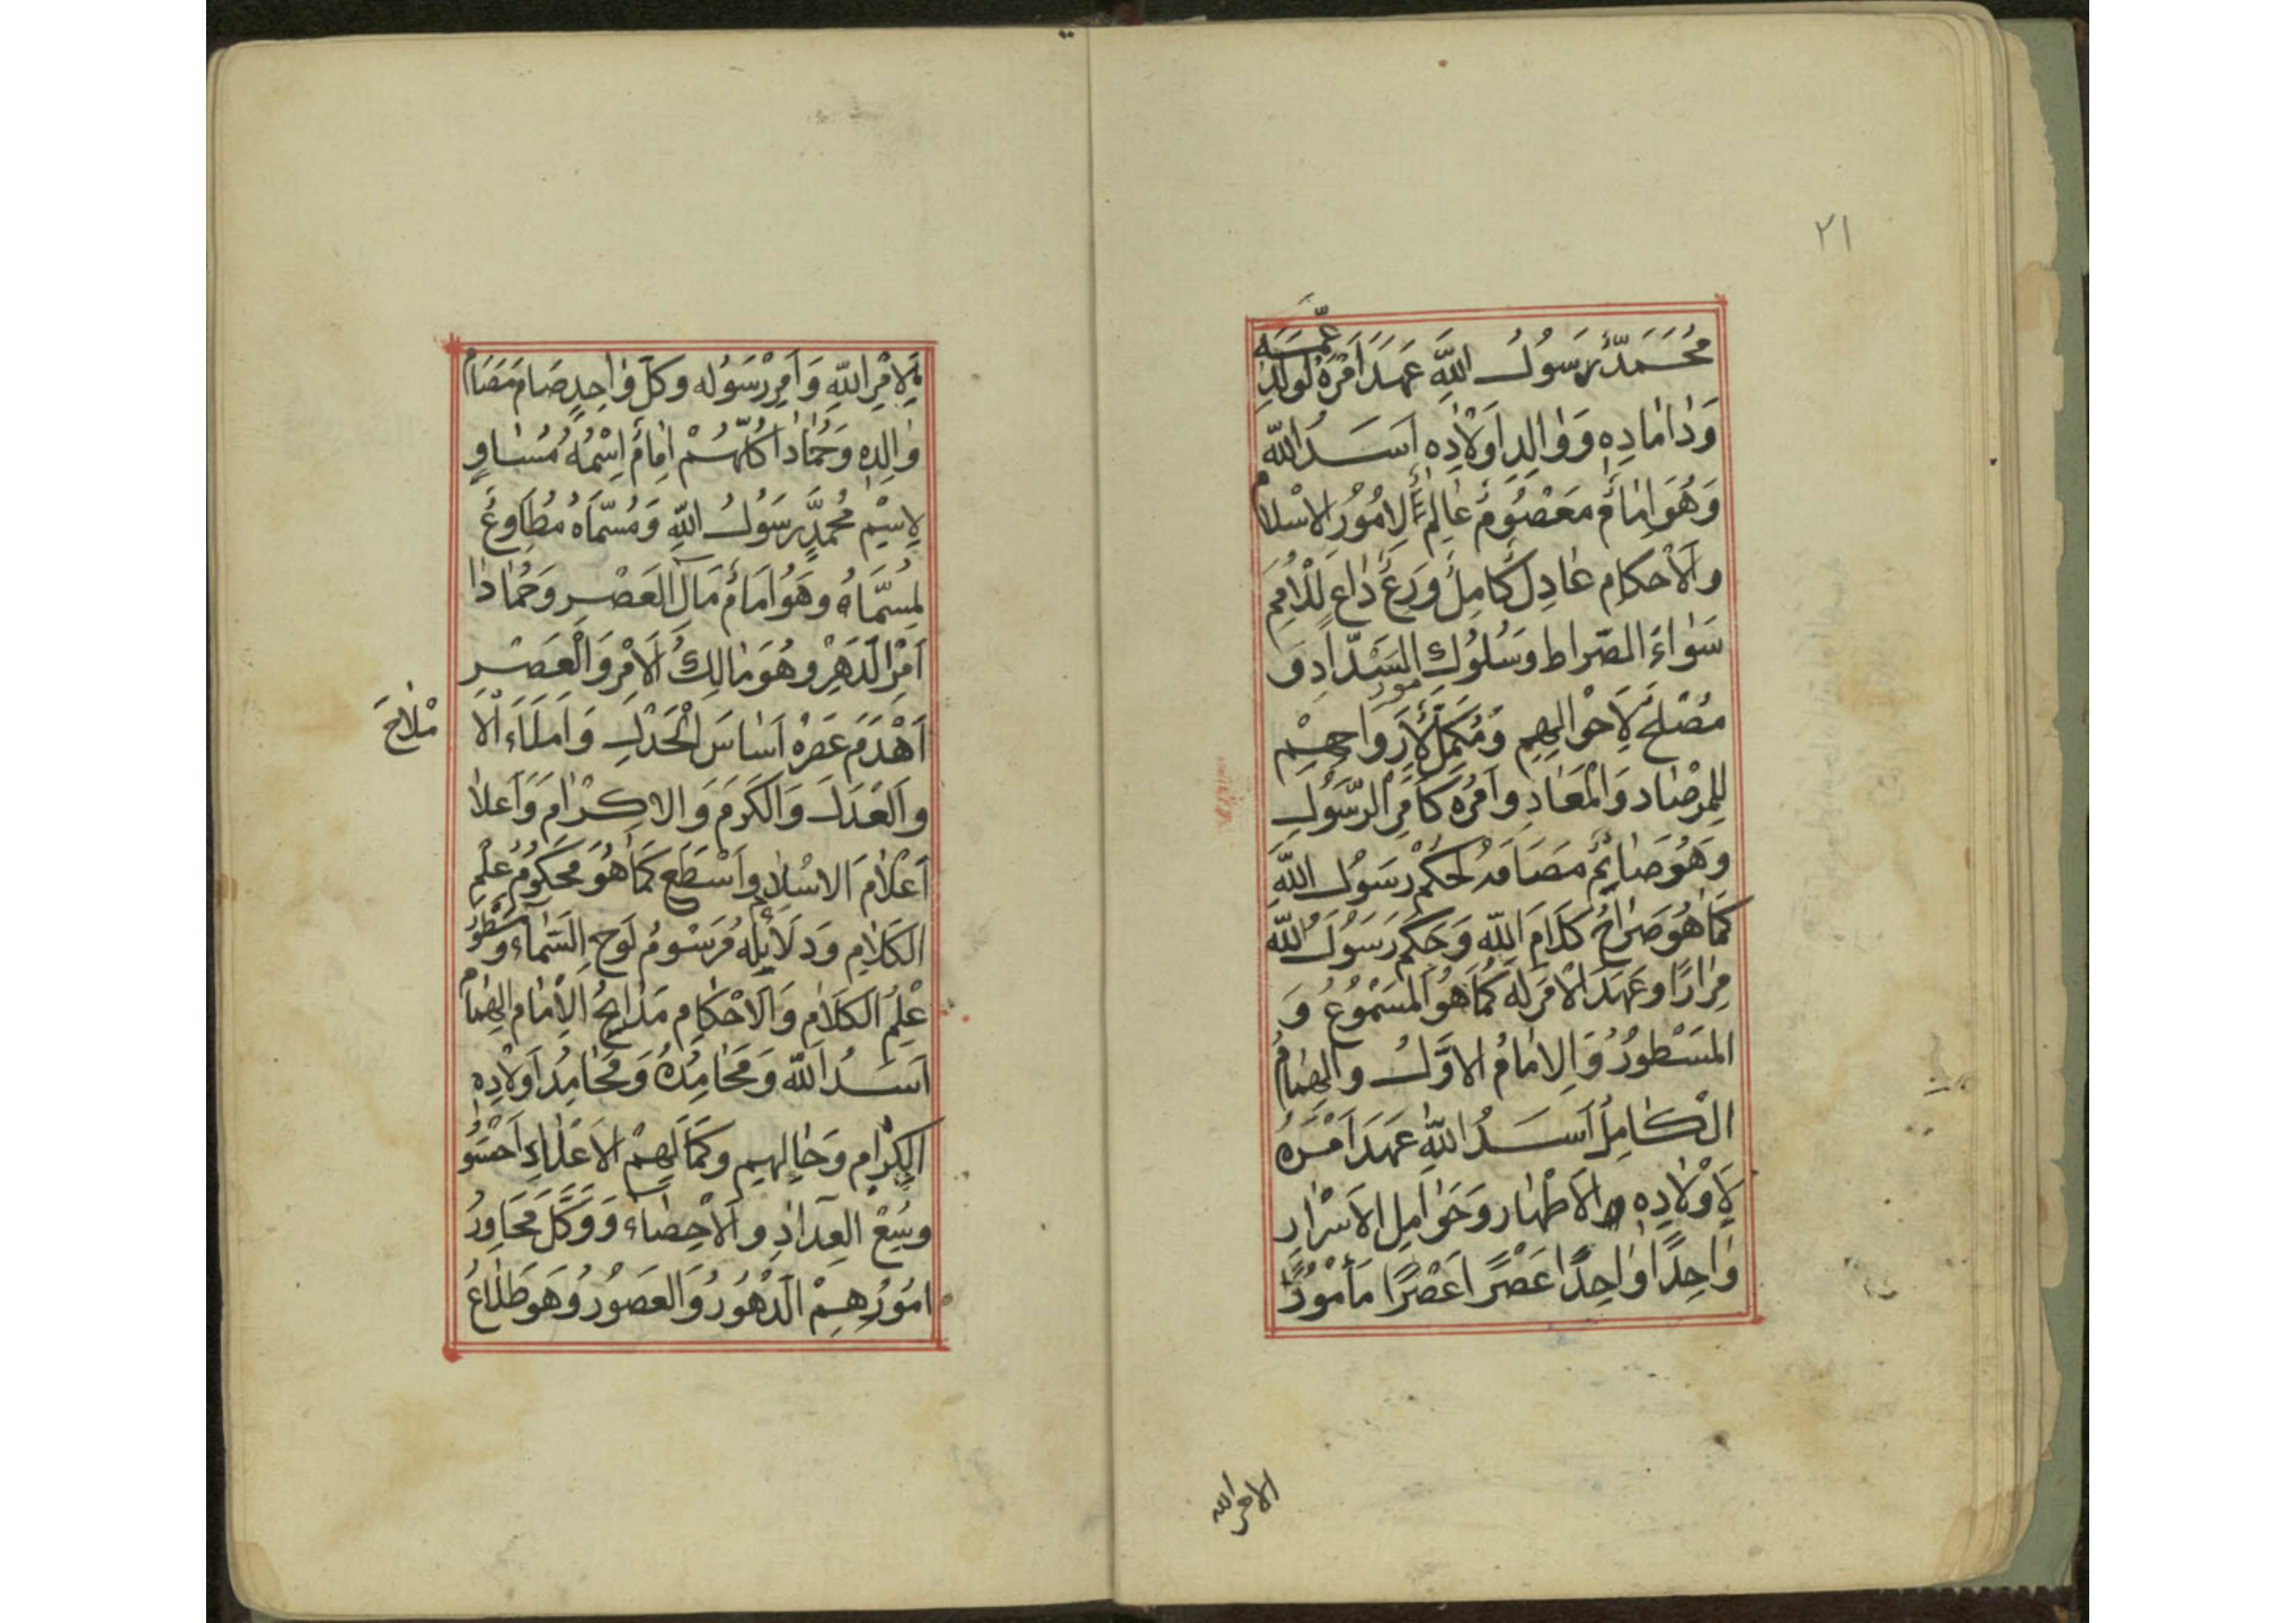 ٢١
مُحَمَّدٌ رَسُولُ اللّٰهِ عَهَدَ اَمْرَهُ لِوَلَدِ عَمِّهِ
وَدَامَادِهِ وَوَالِدِ اَوْلَادِهِ اَسَدُ اللّٰه
وَهُوَ اِمَامٌ مَعْصُومٌ عَالِمٌ لِاُمُورِ الاسْلَام
والاَحْكَام عَادِلٌ كَامِلٌ وَرِعٌ دَاعٍ لِلْاُمَمِ
سَوَاءَ الصِّرَاط وَسُلُوكِ السَّدَادِ وَ
مُصْلِحٌ لِاَحْوَالِهِمِ وَمُكَمِّلٌ لِاَرْوَاحِهِمْ
لِلمِرْصَادِ وَالْمَعَادِ وَاَمْرُهُ كَاَمْرِ الرَّسُولِ
وَهُوَ صَائِمٌ لِحُكْمِ رَسُولِ اللّٰهِ
كَمَا هُوَ صَرَاحُ كَلَامِ اللّٰهِ وَحَكَمَ رَسُولُ اللّٰه
مِرَارًا وَعَهَدَ الْاَمْرَ لَهُ كَمَا هُوَ الْمَسْمُوعُ وَ
المَسْطُورُ وَالاِمَامُ الاَوَّلُ وَالهُمَامُ
الْكَامِلُ اَسَدُ اللّٰهِ عَهَدَ اَمْرَهُ
لِاَوْلَادِهِ الاَطْهَارِ وَحَوَامِلِ الاَسْرَارِ
وَاحِدًا وَاحِدًا عَصْرًا عَصْرًا مَأْمُورًا
الامر الله
لِاَمْرِ اللّٰهِ وَاَمْرِ رَسُولِه وَكُلّ وَاحِدٍ صَامَ مَصَامَ
وَالِدِهِ وَحُمَادَا كُلِّهُمْ اِمَامٌ اِسْمُهُ مُسَاوٍ
لِاِسْمِ مُحَمَّدٍ رَسُولُ اللّٰهِ وَمُسَمَّاهُ مُطَاوِعٌ
لِمُسَمَّاهُ وَهُوَ اِمَامُ مَآلِ العَصْرِ وَحُمَادَا
اَمْرِ الدَّهْرِ وَهُوَ مَالِكُ الاَمْرِ وَالْعَصْرِ
اَهْدَمَ عَصْرُهُ اَسَاسَ الْحَدْلِ وَاَمْلَاءَ الْا
مْلَاحَ
وَالْعَدْلَ وَالْكَرَمَ وَالاِكْرَامَ وَاَعْلَا
اَعْلَامَ الاسْلَامِ وَاَسْطَعَ كَمَا هُوَ مَحْكُومُ عِلْمِ
الْكَلَامِ وَدَلَائِلِهِ وَمَرْسُومُ لَوحِ السَّمَاءِ وسُطُورُ
عِلْمِ الْكَلَامِ وَالاَحْكَامِ مَدَائِحُ الْاِمَامِ الهُمَام
اَسَدُ اللّٰه وَمَحَامِدُهُ وَمَحَامِدُ اَوْلَادِهِ
الْكِرَامِ وَحَالِهِمِ وَكَمَالِهِمْ
العِدَادِ وَالاِحْصَاء وَوَكَّلَ مُحَاوِرُ
اُمُورِهِمْ الدُّهُورُ وَالعُصُورُ وَهُوَ طُلَّاعُ